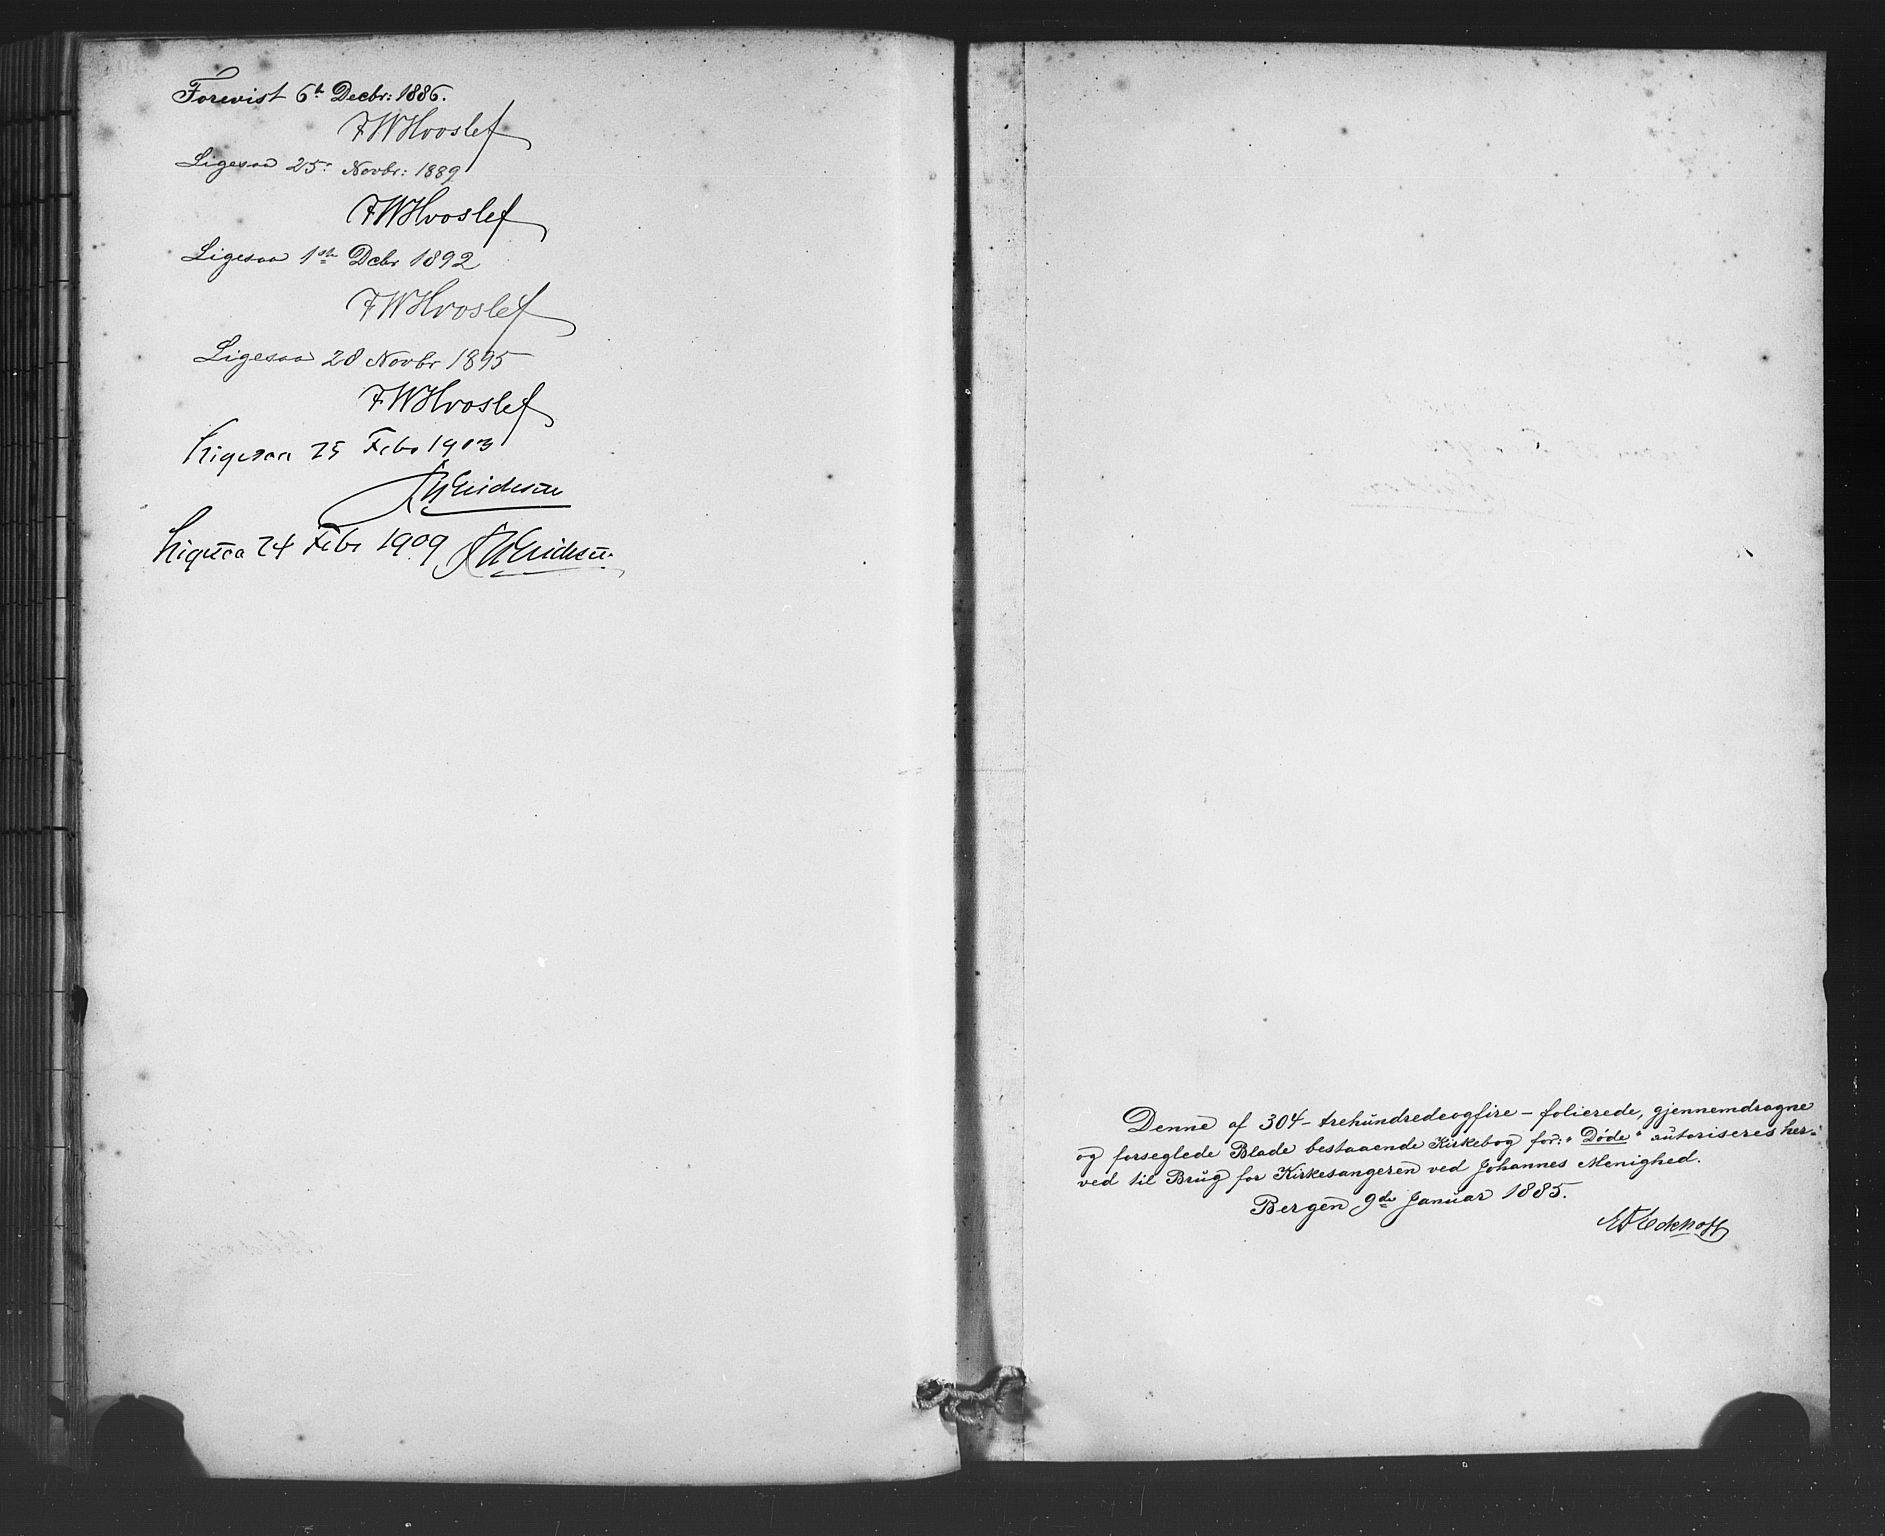 Forevist 6te Decbr: 1886.
FWHvoslef
Ligesaa 25: Novbr: 1889
FWHvoslef
Ligesaa 1ste Dcbr 1892
FWHvoslef
Ligesaa 28 Novbr 1895
FWHvoslef
Ligesaa 25 Febr 1903
Ligesaa 24 Febr 1909
Denne af 304 - trehundredeogfire - folierede, gjennemdragne
og forseglede Blade bestaaende Kirkebog for: "Døde" autoriseres her-
ved til Brug for Kirkesangeren ved Johannes Menighed.
Bergen 9de Januar 1885.
Eckhoff